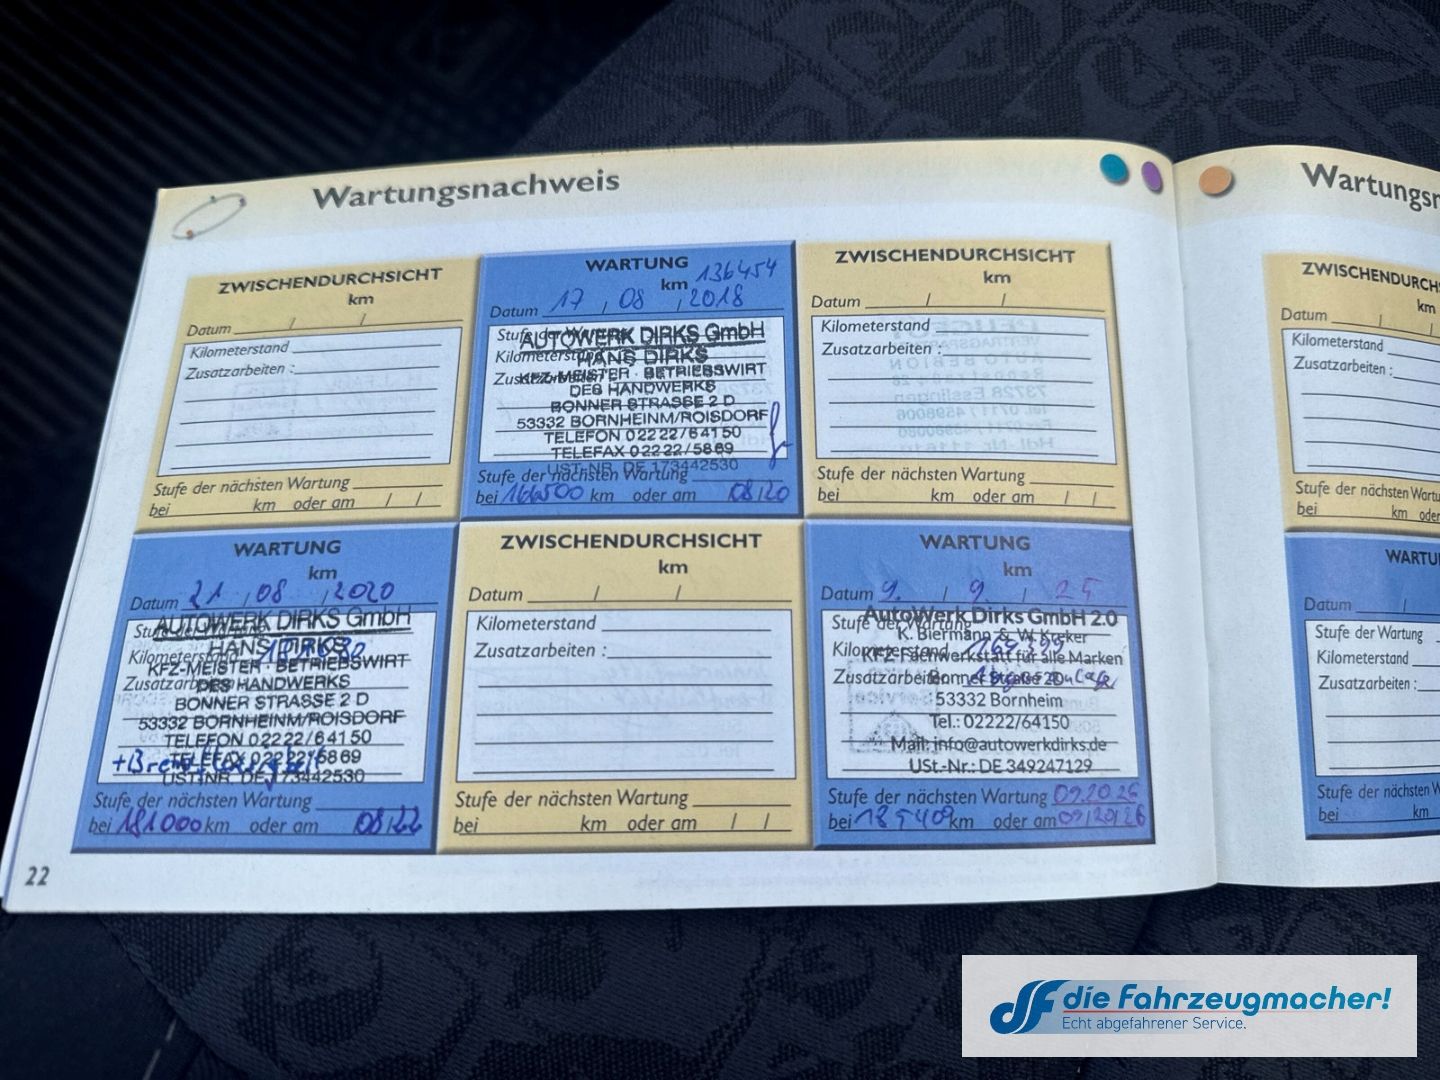 Wartungsnachweis
ZWISCHENDURCHSICHT
km
Datum / /
Kilometerstand
Zusatzarbeiten :
Stufe der nächsten Wartung
bei km oder am / /
WARTUNG
km 136454
Datum 17 / 08 / 2018
Stufe der Wartung
Kilometerstand
AUTOWERK DIRKS GmbH
HANS DIRKS
KFZ-MEISTER · BETRIEBSWIRT
DES HANDWERKS
BONNER STRASSE 2 D
53332 BORNHEINM/ROISDORF
TELEFON 02222/64150
TELEFAX 02222/5869
UST-NR. DE 173442530
Stufe der nächsten Wartung
bei 166500 km oder am 08/20
ZWISCHENDURCHSICHT
km
Datum / /
Kilometerstand
Zusatzarbeiten :
Stufe der nächsten Wartung
bei km oder am / /
WARTUNG
km
Datum 21 / 08 / 2020
Kilometerstand
Zusatzarbeiten
AUTOWERK DIRKS GmbH
HANS DIRKS
KFZ-MEISTER · BETRIEBSWIRT
DES HANDWERKS
BONNER STRASSE 2 D
53332 BORNHEINM/ROISDORF
TELEFON 02222/64150
TELEFAX 02222/5869
UST-NR. DE 173442530
Stufe der nächsten Wartung
bei 181000 km oder am 08/22
ZWISCHENDURCHSICHT
km
Datum / /
Kilometerstand
Zusatzarbeiten :
Stufe der nächsten Wartung
bei km oder am / /
WARTUNG
km
Datum 9. / 9 / 25
Stufe der Wartung
Kilometerstand
Zusatzarbeiten
AutoWerk Dirks GmbH 2.0
K. Biermann & W. Kreker
KFZ-Fachwerkstatt für alle Marken
Bonner Straße 2D
53332 Bornheim
Tel.: 02222/64150
Mail: info@autowerkdirks.de
USt.-Nr.: DE 349247129
Stufe der nächsten Wartung 09.20.26
bei 185409 km oder am 09/20/26
22
Wartungsn
ZWISCHENDURCHS
km
Datum / /
Kilometerstand
Zusatzarbeiten :
Stufe der nächsten Wartu
bei km oder
WARTU
Datum /
Stufe der Wartung
Kilometerstand
Zusatzarbeiten :
Stufe der nächsten W
bei km
die Fahrzeugmacher!
Echt abgefahrener Service.